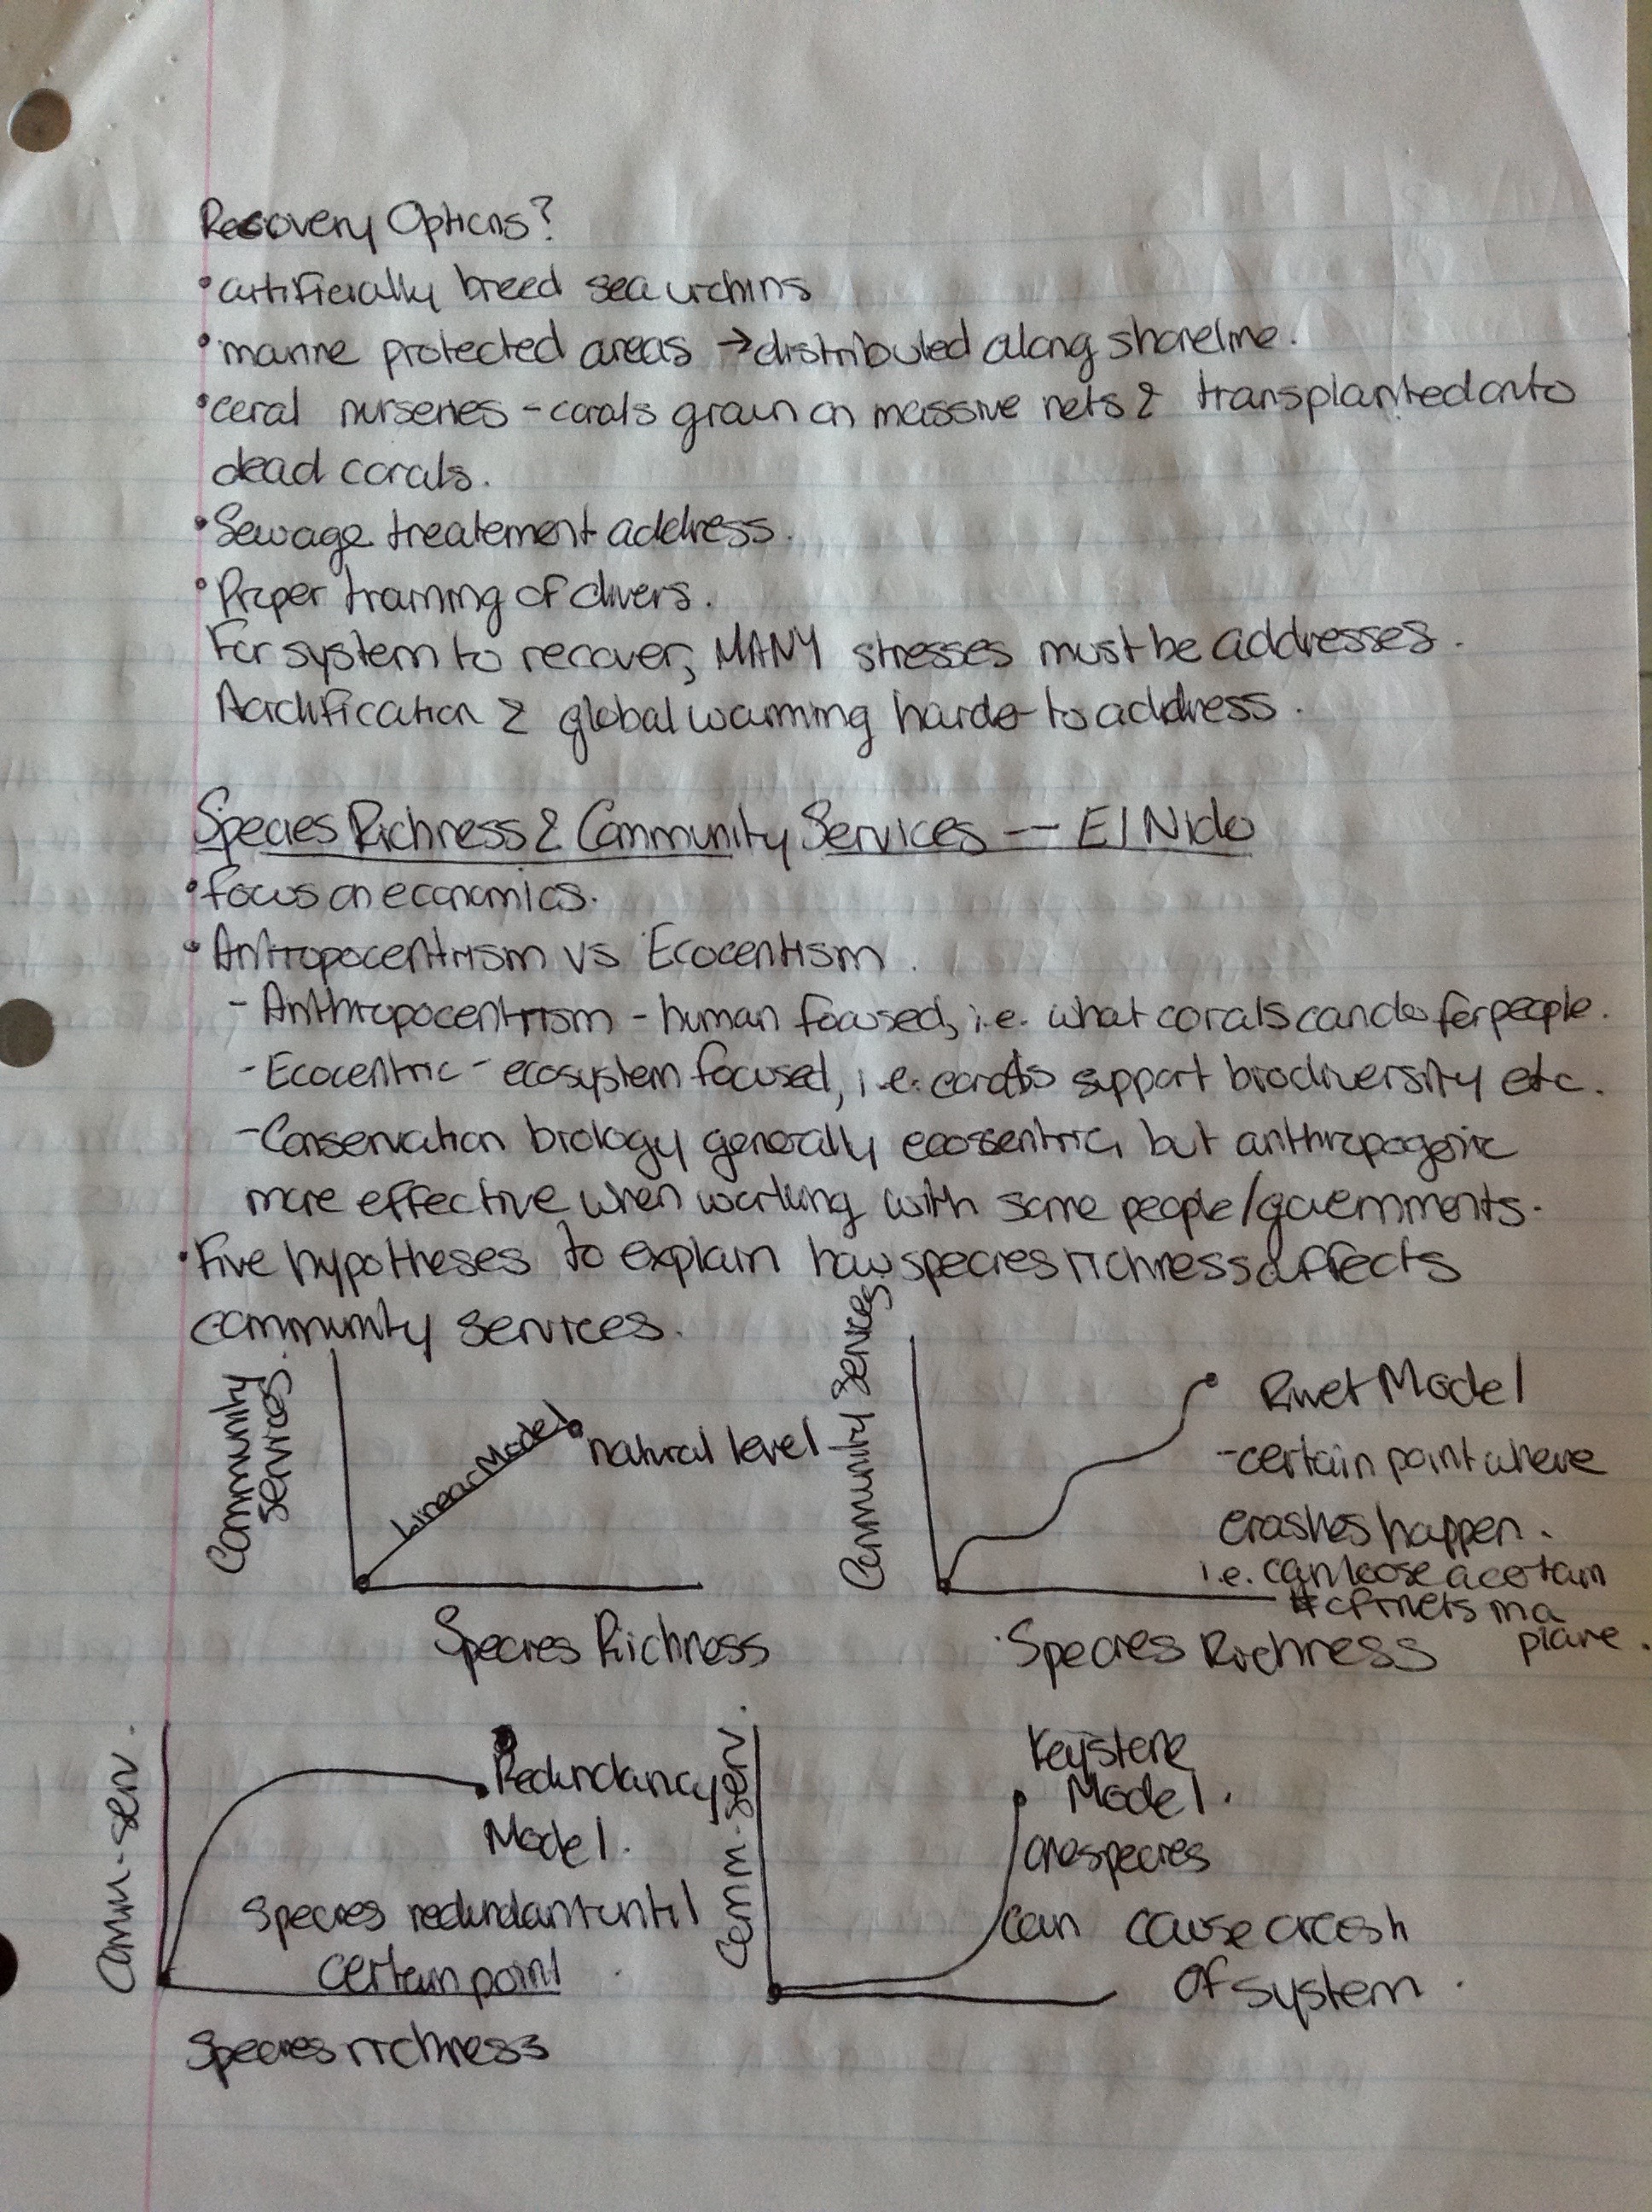 Recovery Options?
• artificially breed sea urchins
• marine protected areas → distributed along shoreline.
• coral nurseries - corals grown on massive nets & transplanted onto
dead corals.
• Sewage treatement address.
• Proper training of divers.
For system to recover, MANY stresses must be addresses.
Acidification & global warming harder to address.
Species Richness & Community Services — El Nido
• focus on economics.
• Antropocentrism vs Ecocentism.
- Anthropocentrism - human focused, i.e. what corals can do for people.
- Ecocentric - ecosystem focused, i.e. corals support biodiversity etc.
- Conservation biology generally ecossentric, but anthropogenic
more effective when working with some people/governments.
• Five hypotheses to explain how species richness affects
community services.
Community
Services
Linear Model
natural level
Species Richness
Community Services
Rivet Model
- certain point where
crashes happen.
i.e. can loose a certain
# of rivets in a
plane.
Species Richness
Comm. serv.
Redundancy
Model.
Species redundant until
certain point
Species richness
Comm. serv.
Keystone
Model.
one species
can cause crash
of system.